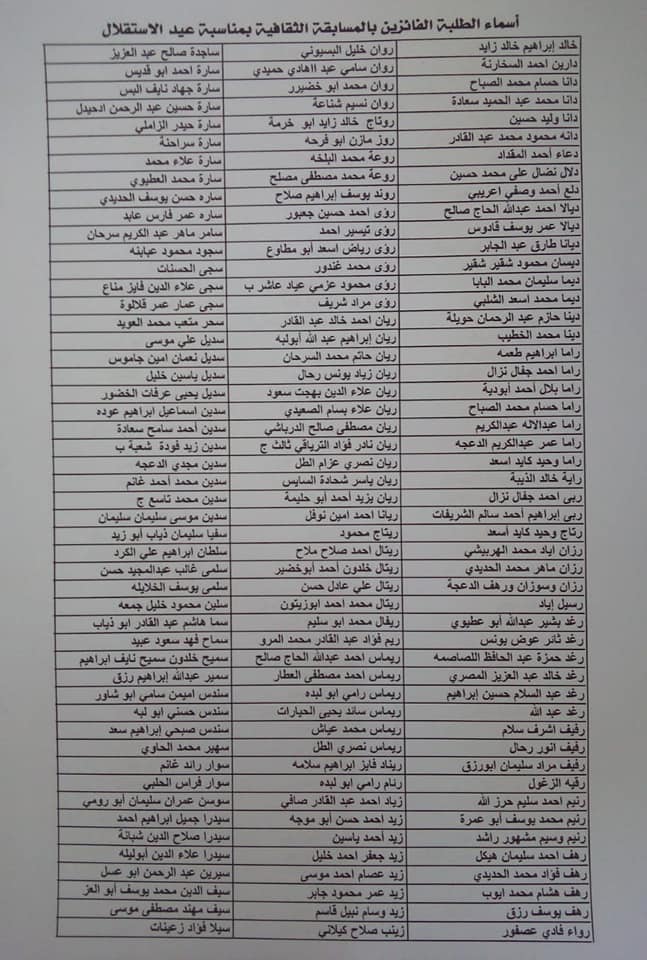 أسماء الطلبة الفائزين بالمسابقة الثقافية بمناسبة عيد الاستقلال
خالد إبراهيم خالد زايد روان خليل البسيوني ساجدة صالح عبد العزيز
دارين احمد السخارنة روان سامي عبد الهادي حميدي سارة احمد ابو قديس
دانا حسام محمد الصباح روان محمد ابو خضيرر سارة جهاد نايف البس
دانا محمد عبد الحميد سعادة روان نسيم شناعة سارة حسين عبد الرحمن ادحيدل
دانا وليد حسين روتاج خالد زايد ابو خرمة سارة حيدر الزاملي
دانه محمود محمد عبد القادر روز مازن ابو فرحه سارة سراحنة
دعاء أحمد المقداد روعة محمد البلخه سارة علاء محمد
دلال نضال علي محمد حسين روعة محمد مصطفى مصلح سارة محمد العطيوي
دلع أحمد وصفي اعريبي روند يوسف إبراهيم صلاح ساره حسن يوسف الحديدي
ديالا احمد عبدالله الحاج صالح رؤى احمد حسين جعبور ساره عمر فارس عابد
ديالا عمر يوسف قادوس رؤى تيسير احمد سامر ماهر عبد الكريم سرحان
ديانا طارق عبد الجابر رؤى رياض اسعد أبو مطاوع سجود محمود عبابنه
ديسان محمود شقير شقير رؤى محمد غندور سجى الحسنات
ديما سليمان محمد البابا رؤى محمود عزمي عياد عاشر ب سجى علاء الدين فايز مناع
ديما محمد اسعد الشلبي رؤى مراد شريف سجى عمار عمر قلالوة
دينا حازم عبد الرحمان حويلة ريان احمد خالد عبد القادر سحر متعب محمد العويد
دينا محمد الخطيب ريان إبراهيم عبد الله أبولبه سديل علي موسى
راما ابراهيم طعمه ريان حاتم محمد السرحان سديل نعمان امين جاموس
راما احمد جفال نزال ريان زياد يونس رحال سديل ياسين خليل
راما بلال أحمد أبودية ريان علاء الدين بهجت سعود سديل يحيى عرفات الخضور
راما حسام محمد الصباح ريان علاء بسام الصعيدي سدين اسماعيل ابراهيم عوده
راما عبدالاله عبدالكريم ريان مصطفى صالح الدرباشي سدين أحمد سامح سعادة
راما عمر عبدالكريم الدعجه ريان نادر فؤاد الترياقي ثالث ج سدين زيد فودة شعبة ب
راما وحيد كايد اسعد ريان نصري عزام الطل سدين مجدي الدعجه
راية خالد الذيبة ريان ياسر شحادة السايس سدين محمد أحمد غانم
ربى احمد جفال نزال ريان يزيد أحمد أبو حليمة سدين محمد تاسع ج
ربى إبراهيم أحمد سالم الشريفات ريانا احمد امين نوفل سدين موسى سليمان سليمان
رتاج وحيد كايد أسعد ريتاج محمود سفيا سليمان ذياب أبو زيد
رزان اياد محمد الهربيشي ريتال احمد صلاح ملاح سلطان ابراهيم علي الكرد
رزان ماهر محمد الحديدي ريتال خلدون أحمد أبوخضير سلمى غالب عبدالمجيد حسن
رزان وسوزان ورهف الدعجة ريتال علي عادل حسن سلمى يوسف الخلايله
رسيل إياد ريتال محمد احمد ابوزيتون سلين محمود خليل جمعه
رغد بشير عبدالله أبو عطيوي ريفال محمد ابو سليم سما هاشم عبد القادر ابو ذياب
رغد ثائر عوض يونس ريم فؤاد عبد القادر محمد المرو سماح فهد سعود عبيد
رغد حمزة عبد الحافظ اللصاصمه ريماس احمد عبدالله الحاج صالح سميح خلدون سميح نايف ابراهيم
رغد خالد عبد العزيز المصري ريماس احمد مصطفى العطار سمير عبدالله إبراهيم رزق
رغد عبد السلام حسين إبراهيم ريماس رامي أبو لبده سندس اميمن سامي أبو شاور
رغد عبد الله ريماس سائد يحيى الحيارات سندس حسني أبو لبه
رفيف اشرف سلام ريماس محمد عياش سندس صبحي إبراهيم سعد
رفيف انور رحال ريماس نصري الطل سهير محمد الحاوي
رفيف مراد سليمان ابورزق ريناد فايز ابراهيم سلامه سوار رائد غانم
رقيه الزغول رئام رامي ابو لبده سوار فراس الحلبي
رنيم احمد سليم حرز الله زياد احمد عبد القادر صافي سوسن عمران سليمان أبو رومي
رنيم محمد يوسف أبو عمرة زيد احمد حسن أبو موجه سيدرا جميل ابراهيم احمد
رنيم وسيم مشهور راشد زيد أحمد ياسين سيدرا صلاح الدين شبانة
رهف احمد سليمان هيكل زيد جعفر احمد خليل سيدرا علاء الدين أبوليله
رهف فؤاد محمد الحديدي زيد عصام احمد موسى سيرين عبد الرحمن ابو عسل
رهف هشام محمد ايوب زيد عمر محمود جابر سيف الدين محمد يوسف أبو العز
رهف يوسف رزق زيد وسام نبيل قاسم سيف مهند مصطفى موسى
رواء فادي عصفور زينب صلاح كيلاني سيلا فؤاد زعينات